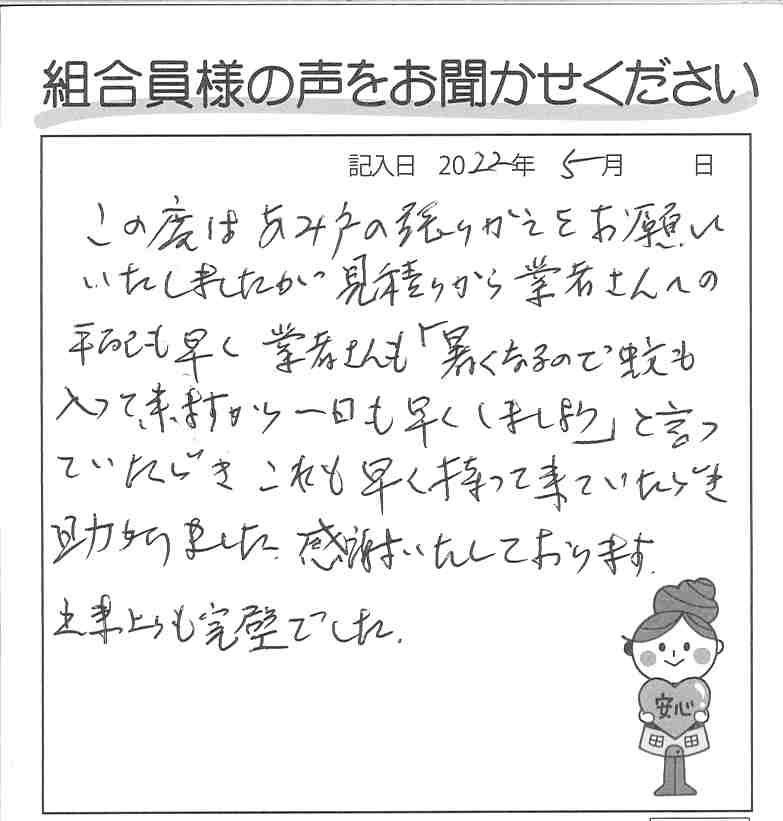 組合員様の声をお聞かせください
記入日 2022年 5月 日
この度はあみ戸の張りかえをお願い
いたしましたが 見積りから業者さんへの
手配も早く 業者さんも「暑くなるので蚊も
入って来ますから一日も早くしましょう」と言っ
ていただき これも早く持って来ていただき
助かりました。感謝いたしております。
出来上りも完璧でした。
安心